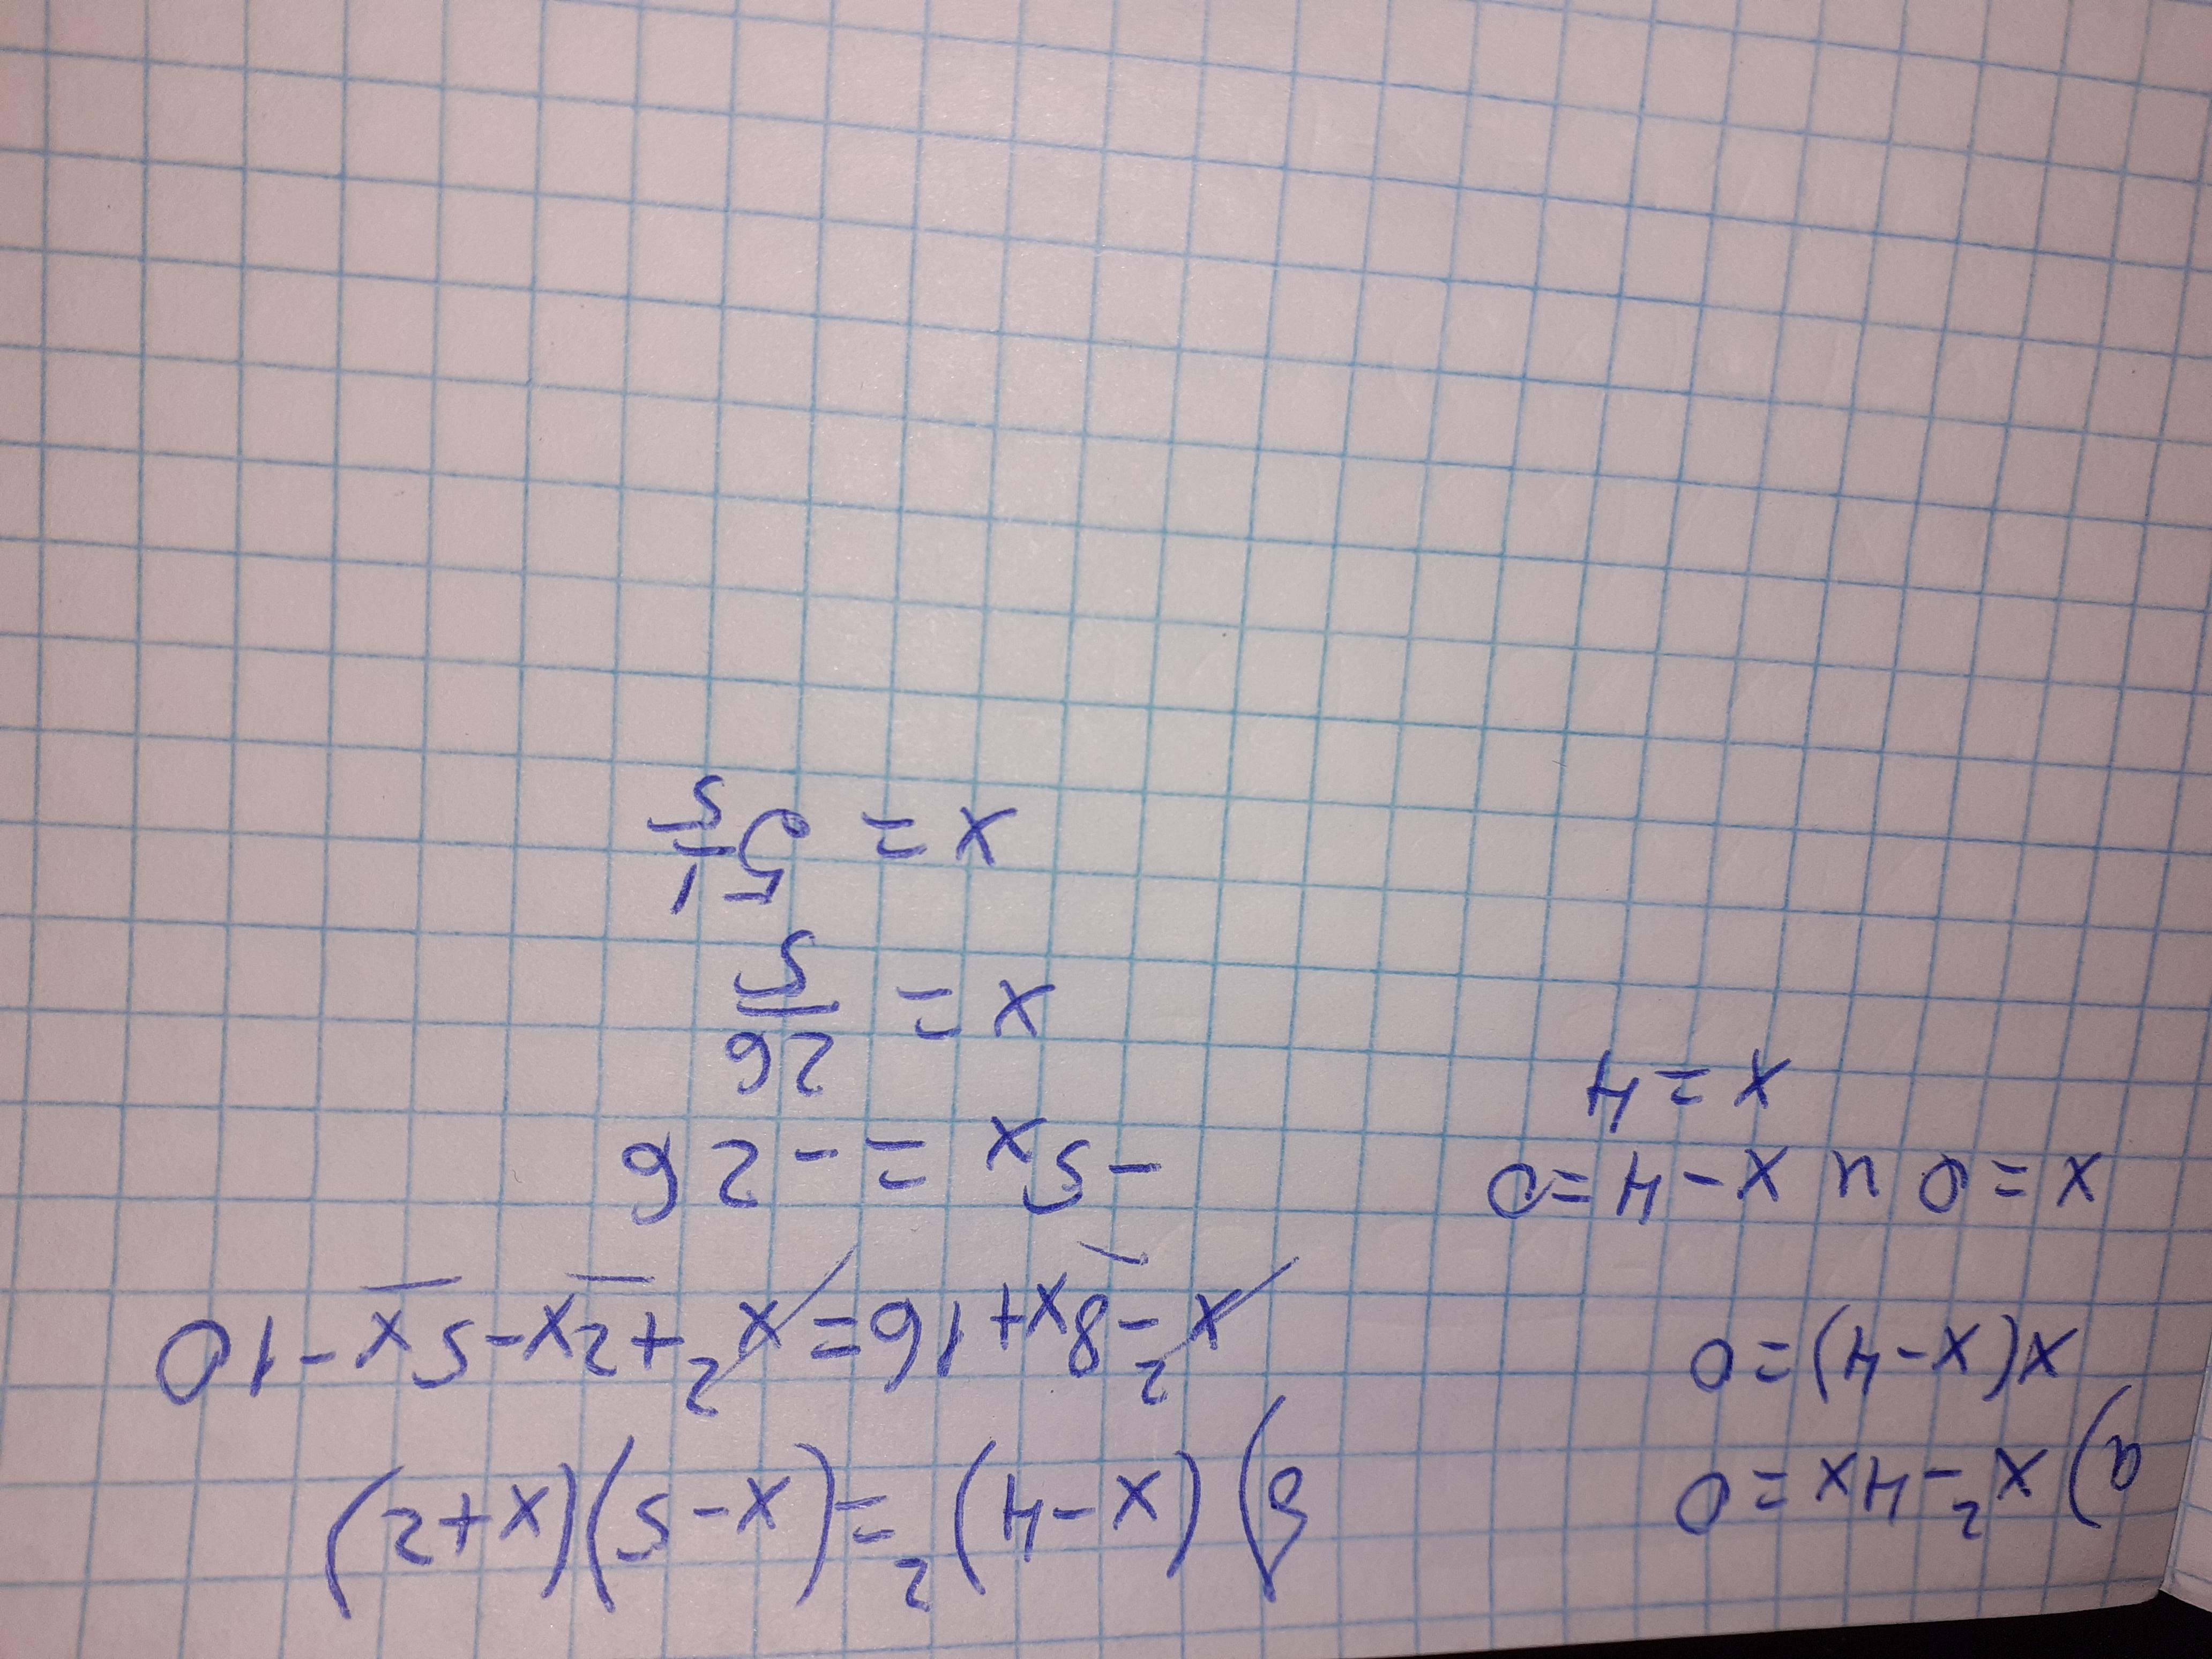 а) x²-4x=0
x(x-4)=0
x=0 и x-4=0
x=4
б) (x-4)²=(x-5)(x+2)
x²-8x+16=x²+2x-5x-10
-5x=-26
x=26/5
x=5 1/5